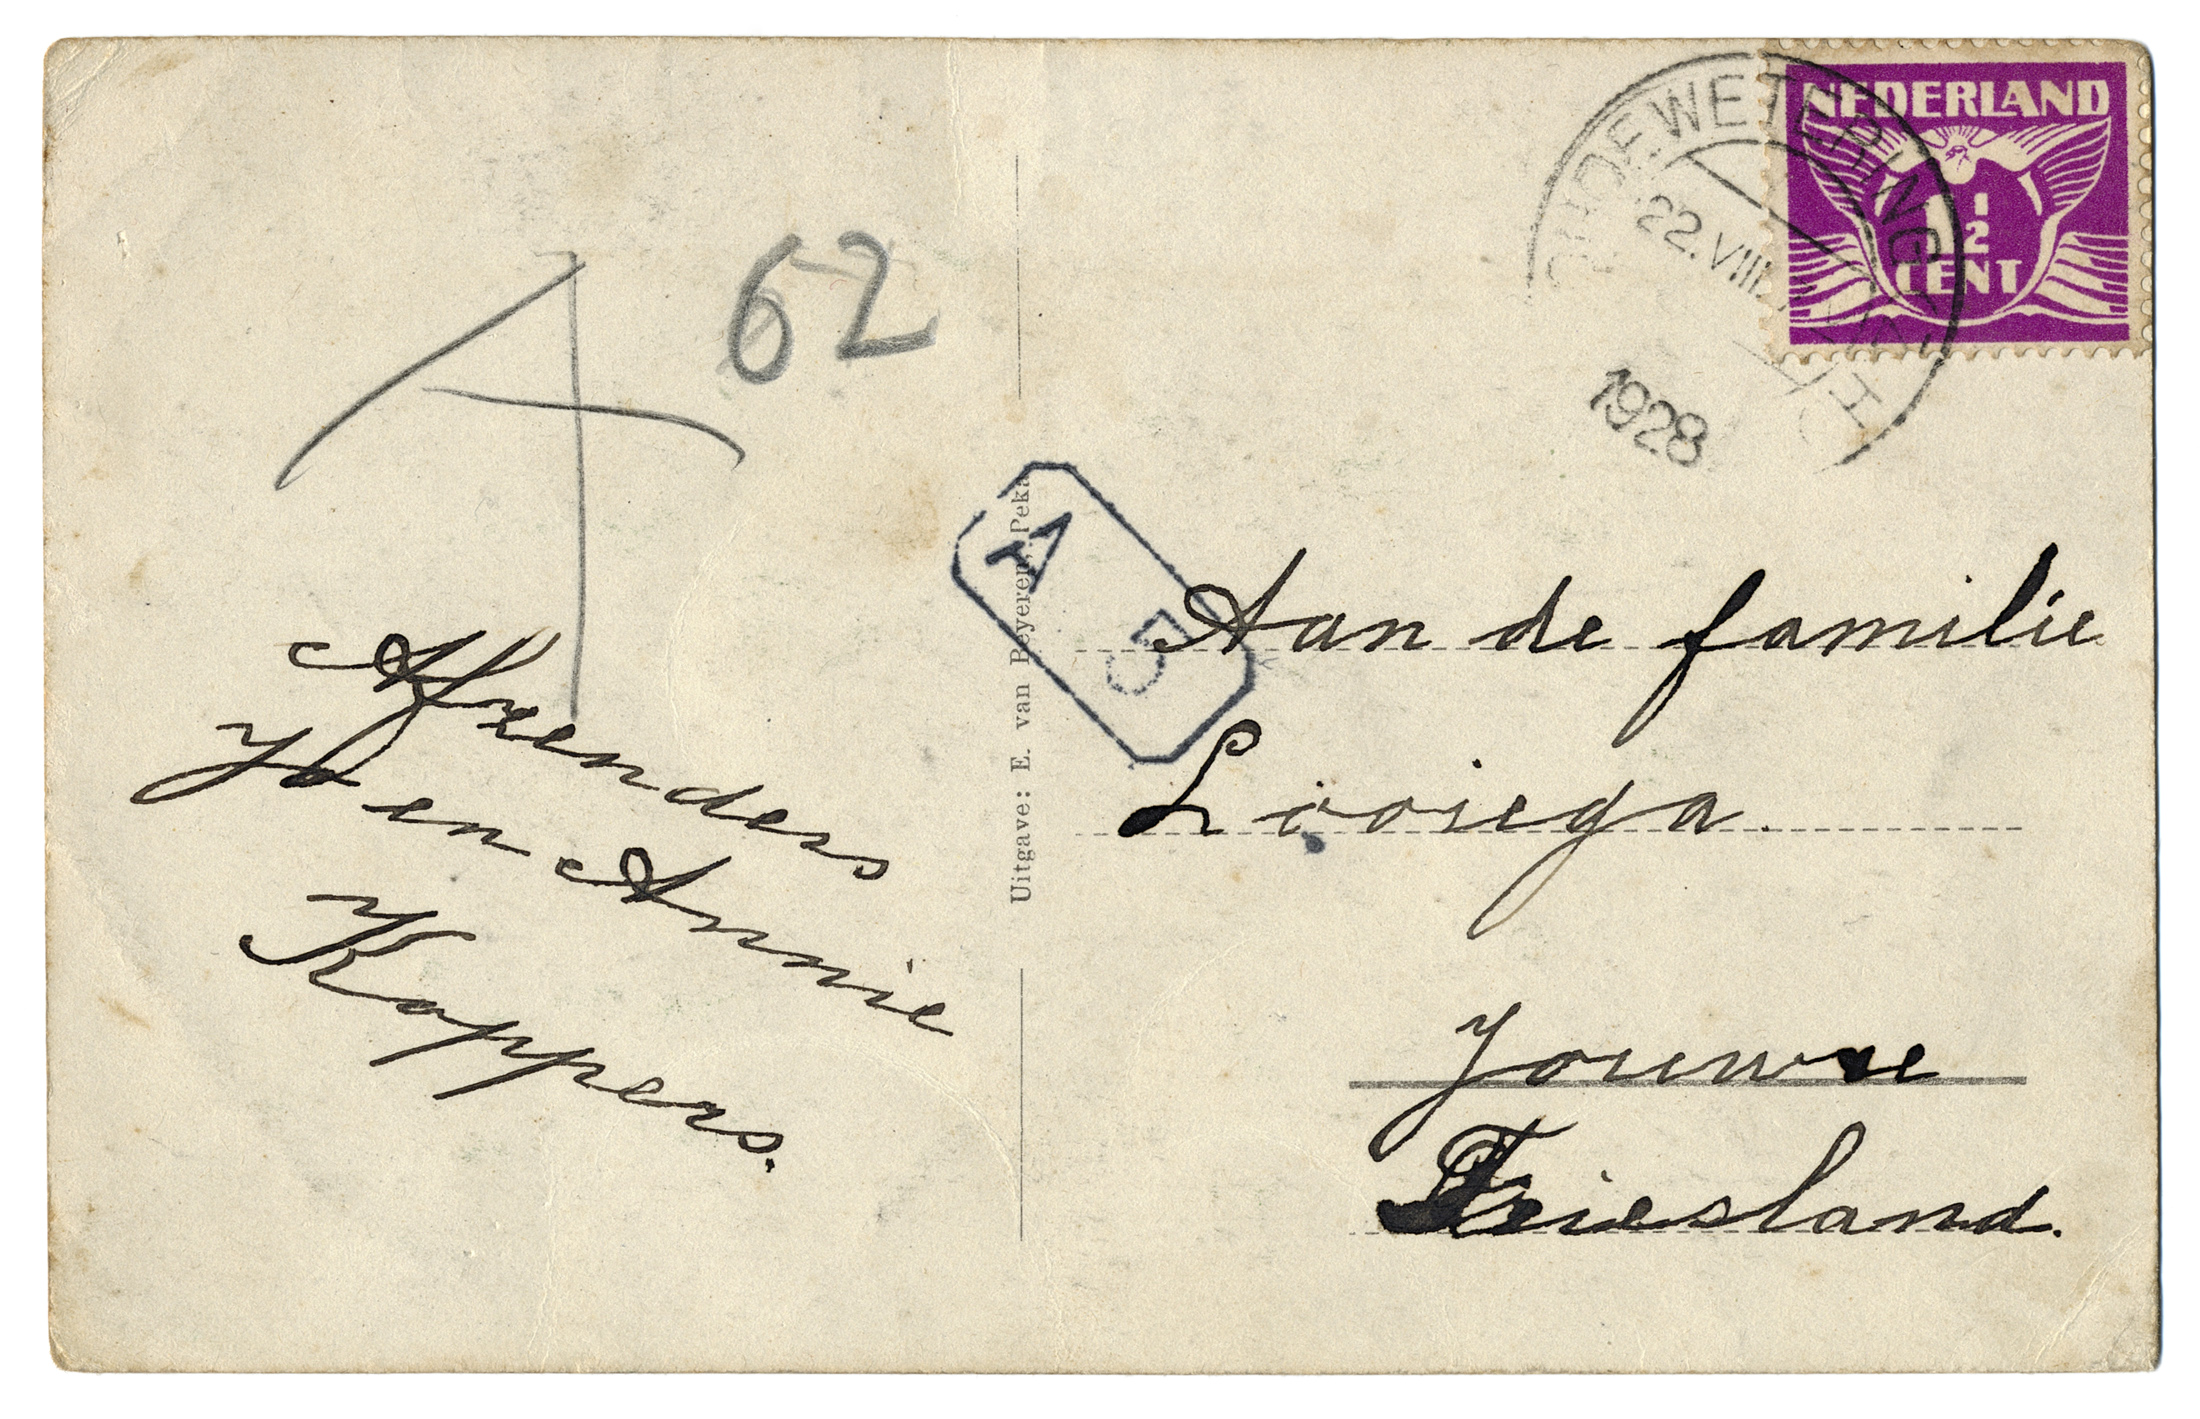 NEDERLAND
1/2
CENT
OUDEWETERING
22.VIII.
1928
A
62
A
5
Uitgave: E. van Beyeren, Peka
Afzenders
Jo en Annie
Koppers.
Aan de familie
Looiega.
Jouwre
Friesland.